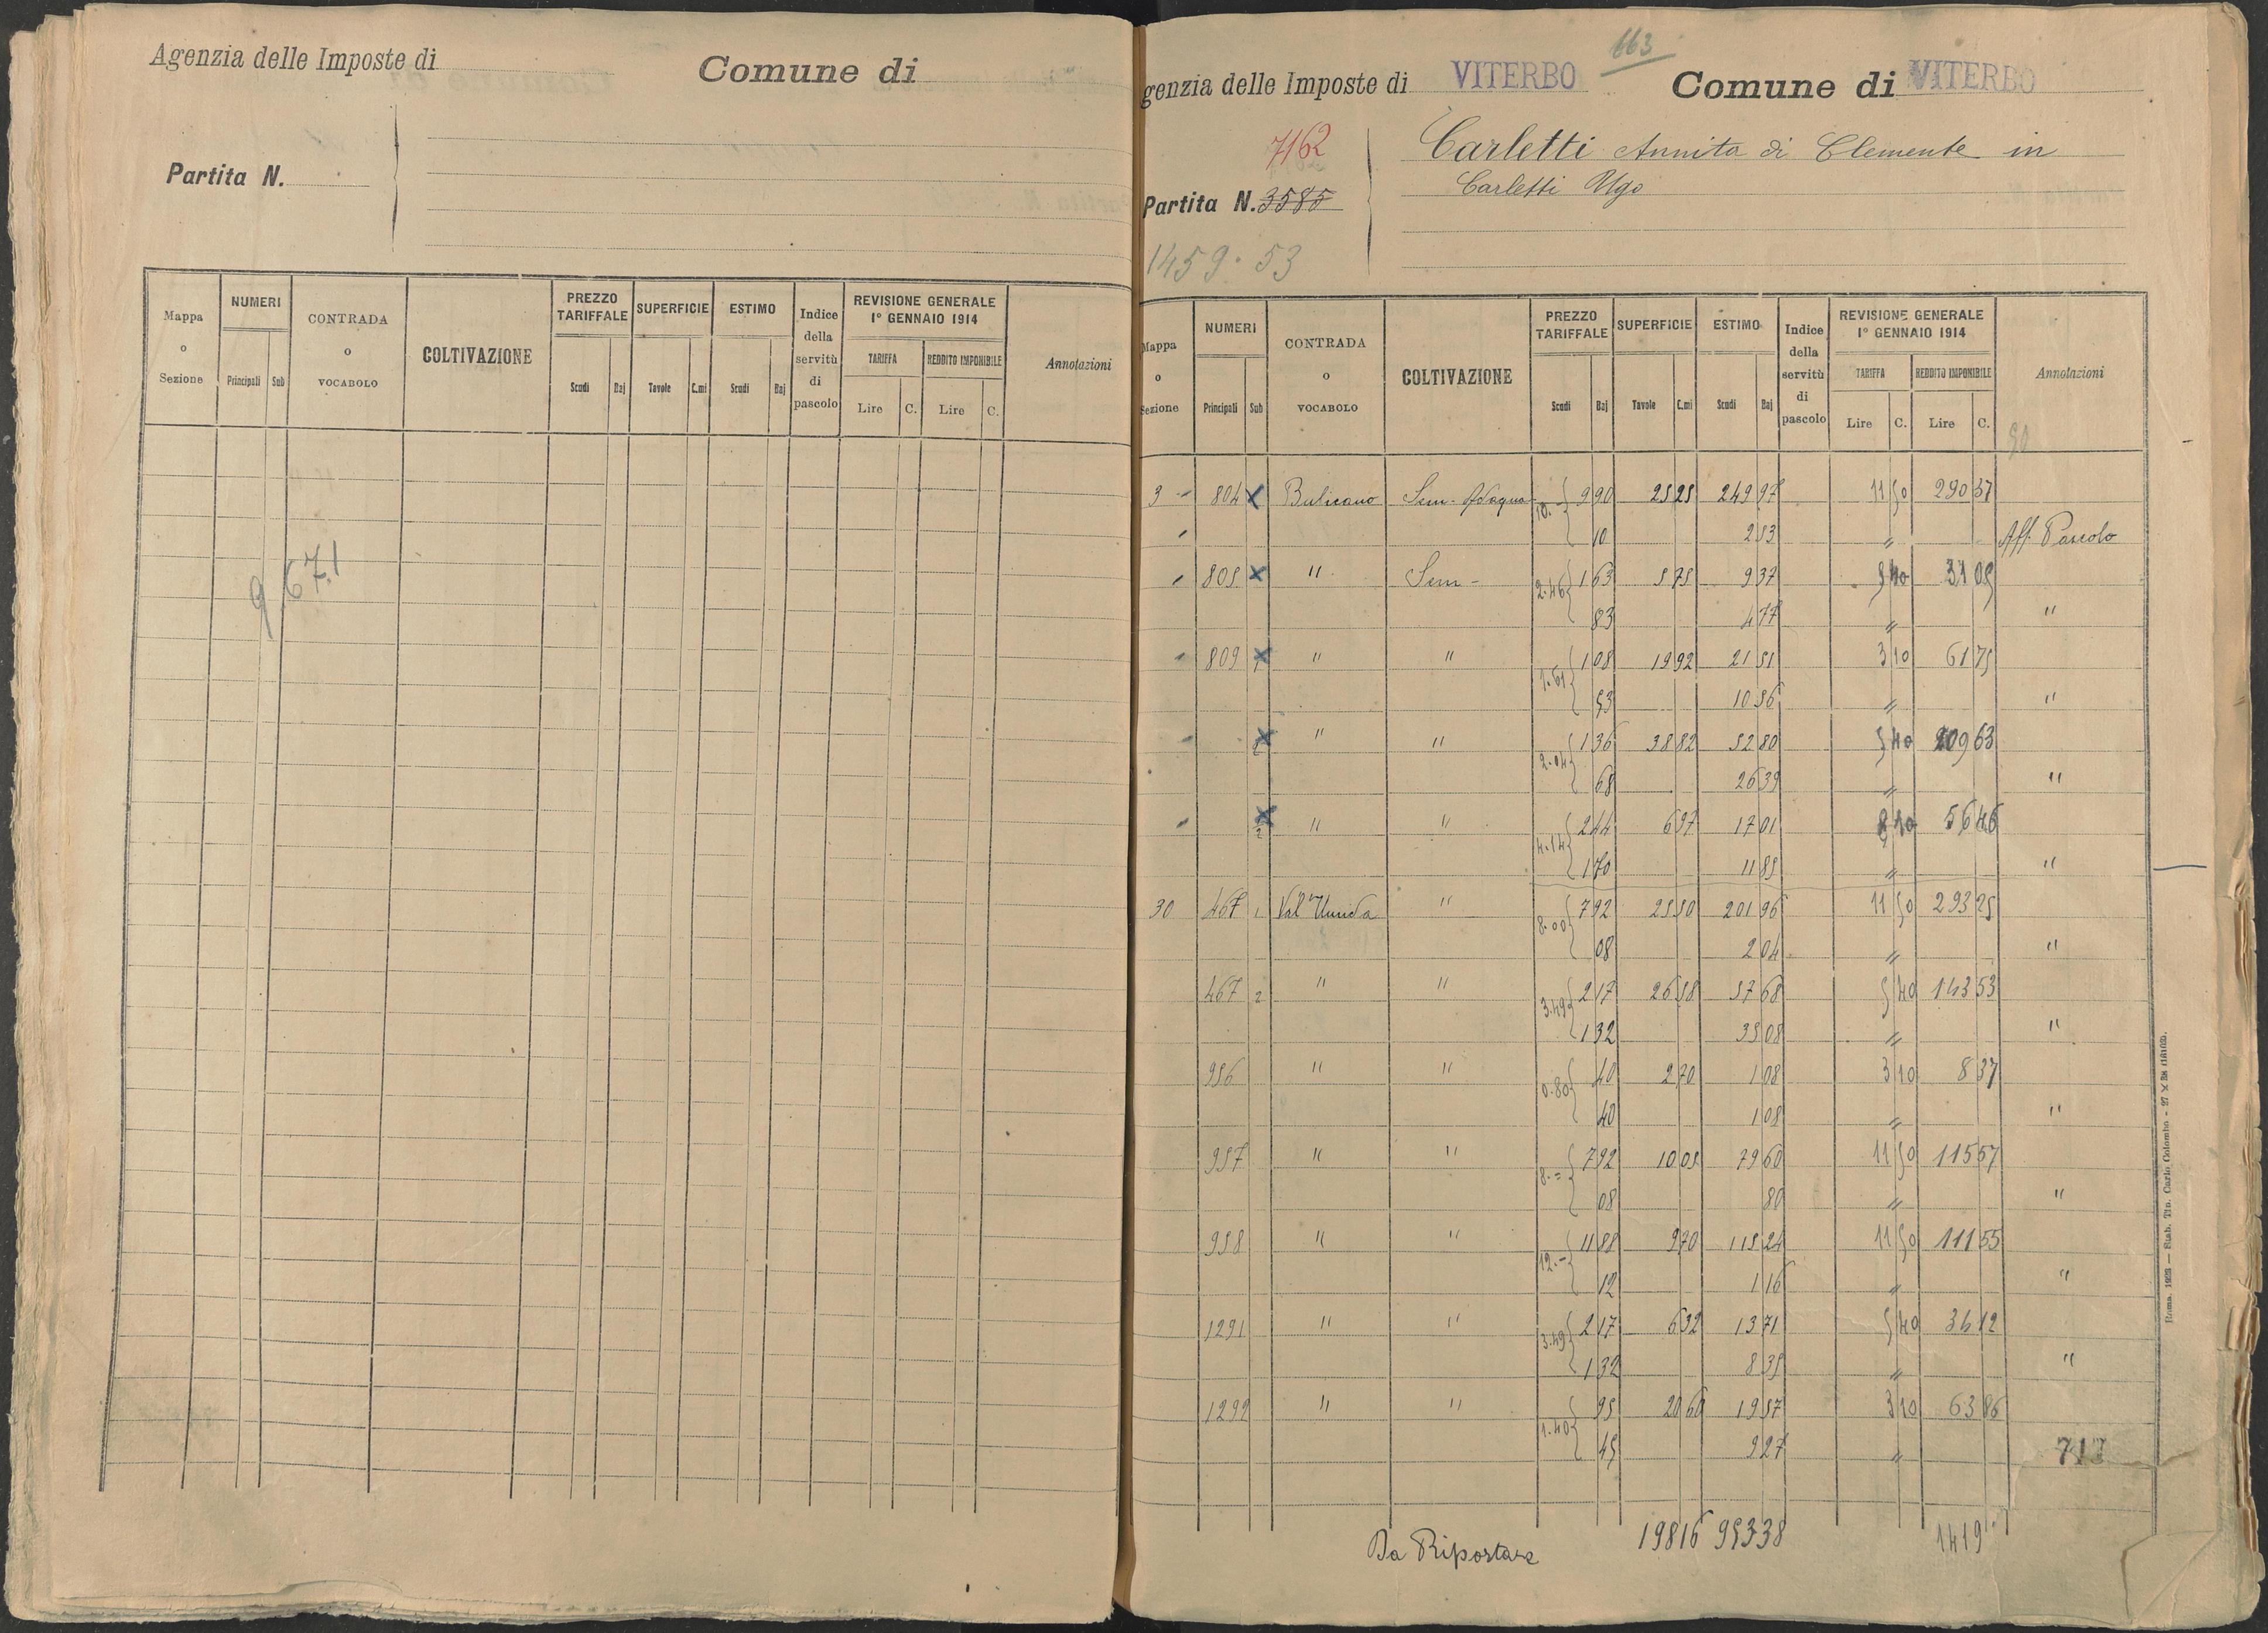 Agenzia delle Imposte di
Comune di
Partita N.
Mappa o Sezione
NUMERI
Principali Sub
CONTRADA o VOCABOLO
COLTIVAZIONE
PREZZO TARIFFALE
Scudi Baj
SUPERFICIE
Tavole C.mi
ESTIMO
Scudi Baj
Indice della servitù di pascolo
REVISIONE GENERALE 1° GENNAIO 1914
TARIFFA
Lire C.
REDDITO IMPONIBILE
Lire C.
Annotazioni
9671
663
genzia delle Imposte di VITERBO Comune di VITERBO
7162
Partita N. 3585
Carletti Annita di Clemente in
Carletti Ugo
1459.53
Mappa o Sezione
NUMERI
Principali Sub
CONTRADA o VOCABOLO
COLTIVAZIONE
PREZZO TARIFFALE
Scudi Baj
SUPERFICIE
Tavole C.mi
ESTIMO
Scudi Baj
Indice della servitù di pascolo
REVISIONE GENERALE 1° GENNAIO 1914
TARIFFA
Lire C.
REDDITO IMPONIBILE
Lire C.
Annotazioni
90
3 - 804 x Bulicano Sem. 10.- 9 90 25 25 249 97 11 50 290 37
10 2 53 " Aff. Pascolo
805 x " Sem - 2.46 1 63 5 75 9 37 5 40 31 05
83 4 77 " "
809 x 1 " " 1.61 1 08 19 92 21 51 3 10 61 75
53 10 56 " "
x " " 2.04 1 36 38 82 52 80 5 40 209 63
68 26 39 " "
x 2 " " 4.14 2 44 6 97 17 01 8 10 56 46
1 70 11 85 " "
30 467 1 Val Unida " 8.00 7 92 25 50 201 96 11 50 293 25
08 2 04 " "
467 2 " " 3.49 2 17 26 58 57 68 5 40 143 53
1 32 35 08 " "
956 " " 0.80 40 2 70 1 08 3 10 8 37
40 1 08 " "
957 " " 8.= 7 92 10 05 79 60 11 50 115 57
08 80 " "
958 " " 12.- 11 88 9 70 115 24 11 50 111 55
12 1 16 " "
1291 " " 3.49 2 17 6 32 13 71 5 40 34 12
1 32 8 35 " "
1292 " " 1.40 95 20 60 19 57 3 10 63 86
45 9 27 "
717
Da Riportare 198 16 953 38 1419
Roma, 1928 — Stab. Tip. Carlo Colombo